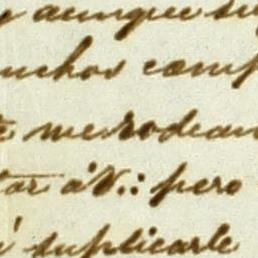 y aunque su
uchos comp
e merodean
tar á V.: pero
suplicarle